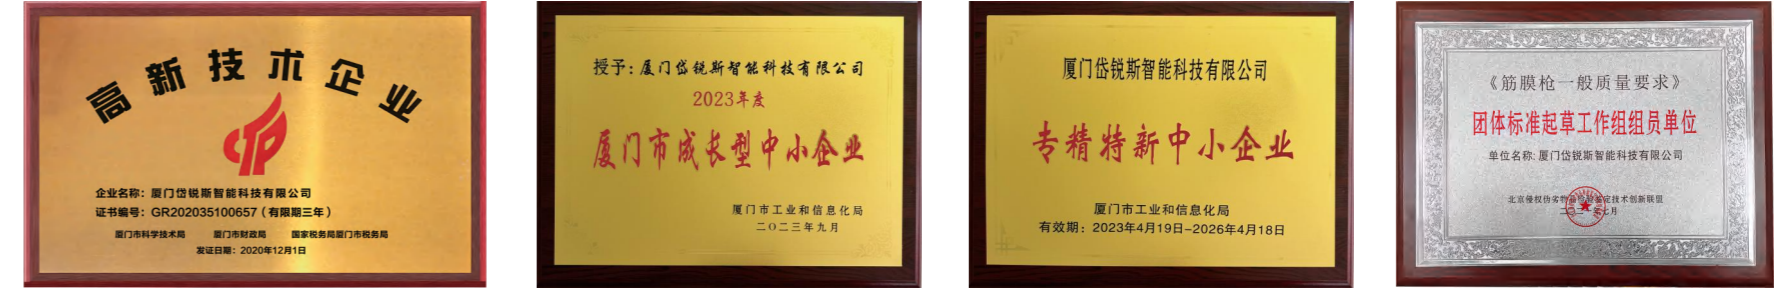 高新技术企业
企业名称：厦门岱锐斯智能科技有限公司
证书编号：GR202035100657（有限期三年）
厦门市科学技术局 厦门市财政局 国家税务局厦门市税务局
发证日期：2020年12月1日
授予：厦门岱锐斯智能科技有限公司
2023年度
厦门市成长型中小企业
厦门市工业和信息化局
二〇二三年九月
厦门岱锐斯智能科技有限公司
专精特新中小企业
厦门市工业和信息化局
有效期：2023年4月19日-2026年4月18日
《筋膜枪一般质量要求》
团体标准起草工作组组员单位
单位名称：厦门岱锐斯智能科技有限公司
北京侵权伪劣物品 鉴定技术创新联盟
七月